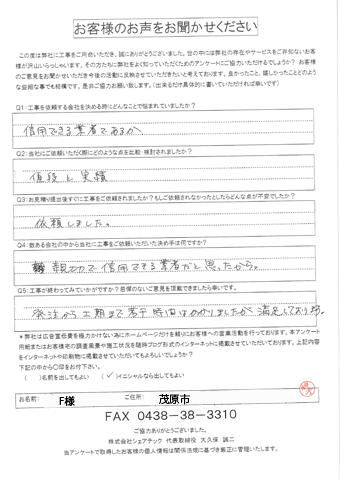 お客様のお声をお聞かせください
この度は弊社に工事をご用命いただき、誠にありがとうございました。世の中には弊社の存在やサービスをご存知ないお客
様が沢山いらっしゃいます。その方たちに弊社をよく知っていただくためのアンケートにご協力いただけるでしょうか? お客
様のご意見をお聞かせいただき今後の活動に反映させていただきたいと考えております。良かったこと、嬉しかったことどのよ
うな些細な事でも結構です。是非ご協力お願い致します。(出来るだけ具体的に書いていただければ幸いです)
Q1:工事を依頼する会社を決める時にどんなことで悩まれていましたか?
信用できる業者であるか、
Q2:当社にご依頼いただく際にどのような点を比較・検討されましたか?
値段と実績
Q3:お見積り提出後すぐに工事をご依頼されましたか?もしご依頼されなかったとしたらどんな点が不安でしたか?
依頼しました。
Q4:数ある会社の中から当社に工事をご依頼いただいた決め手は何ですか?
親切で信用できる業者だと思ったから。
Q5:工事が終わってみていかがですか?忌憚のないご意見を頂戴できましたら幸いです。
発注から工期まで若干時間はかかりましたが満足しております。
*弊社は広告宣伝費を極力かけない為にホームページだけを頼りにお客様への営業活動を行っております。本アンケート
用紙またはお客様宅の調査風景や施工状況を随時ブログ形式のインターネットに掲載させていただいております。上記内容
をインターネットや印刷物に掲載させていただいてもよろしいでしょうか?
下記の中から〇印をお付下さい。
( )名前を出してもよい (✓)イニシャルなら出してもよい
お名前: F様 ご住所: 茂原市
FAX 0438-38-3310
ご協力ありがとうございました。
株式会社シェアテック 代表取締役 大久保 誠二
当アンケートで取得したお客様の個人情報は関係法規に基づき厳正に管理いたします。